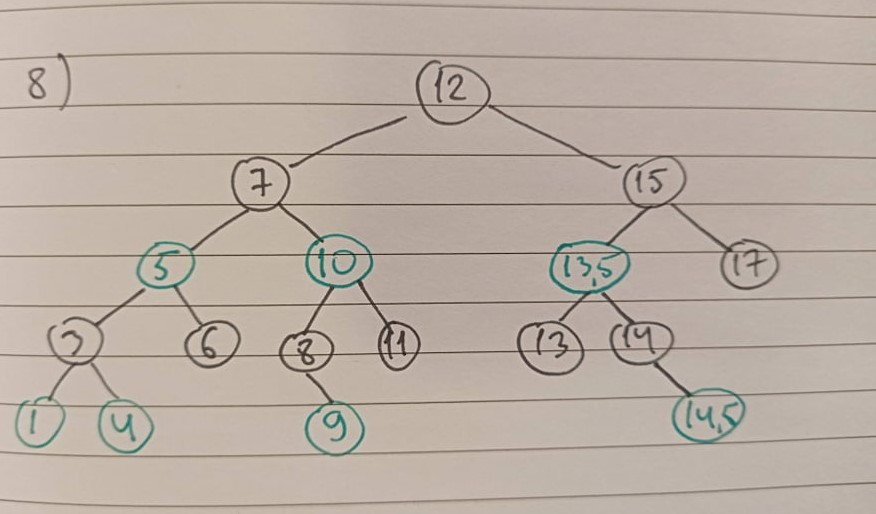 8)
12
7 15
5 10 13,5 17
3 6 8 11 13 14
1 4 9 14,5